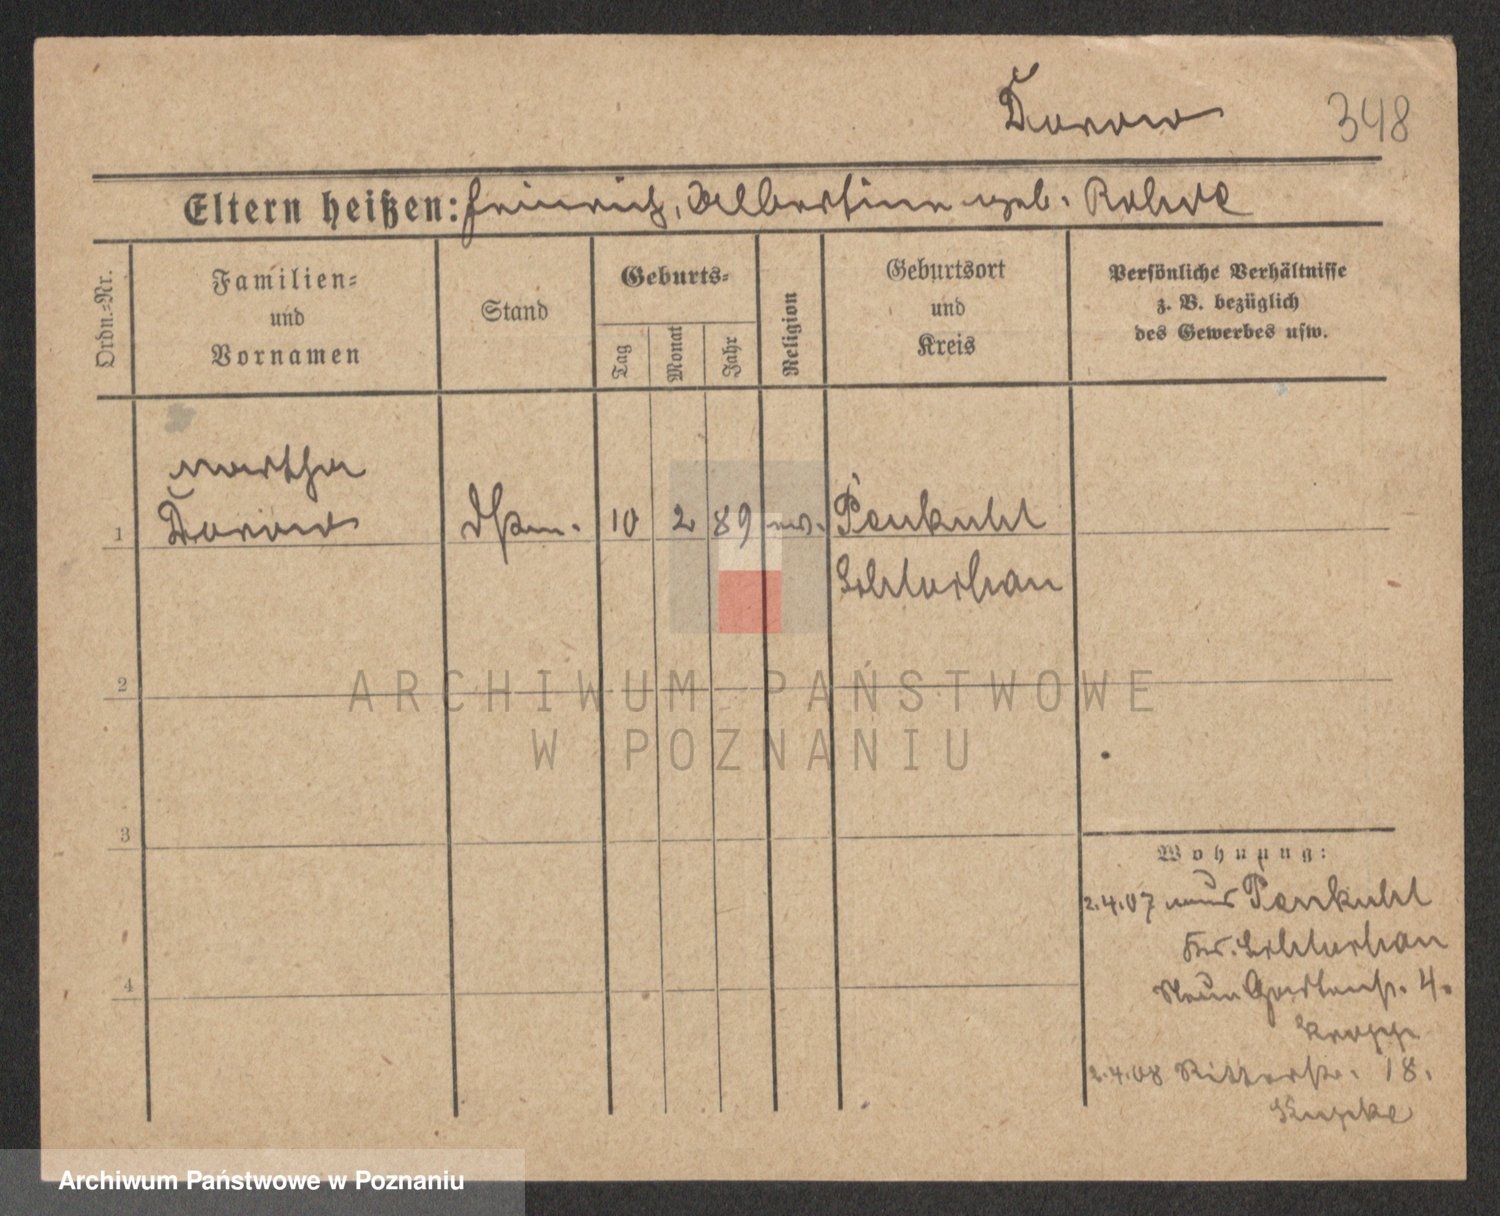 Dorow
348
Eltern heißen: Heinrich, Albertine geb. Rohde
Ordn.=Nr.
Familien=
und
Vornamen
Stand
Geburts=
Tag
Monat
Jahr
Religion
Geburtsort
und
Kreis
Persönliche Verhältnisse
z. B. bezüglich
des Gewerbes usw.
Martha
Dorow
1
Dstm.
10
2
89
ev.
Penkuhl
Schlochau
2
ARCHIWUM PAŃSTWOWE
W POZNANIU
3
Wohnung:
2.4.07 aus Penkuhl
Kr. Schlochau
Neue Gartenstr. 4.
2.4.08 Ritterstr. 18.
4
Archiwum Państwowe w Poznaniu